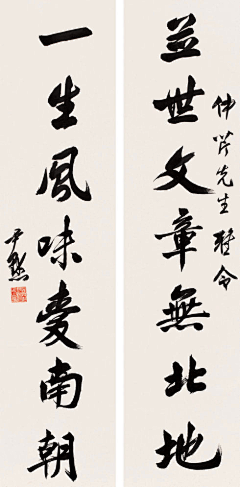 並世文章無北地
仲芹先生雅令
一生風味愛南朝
尹默